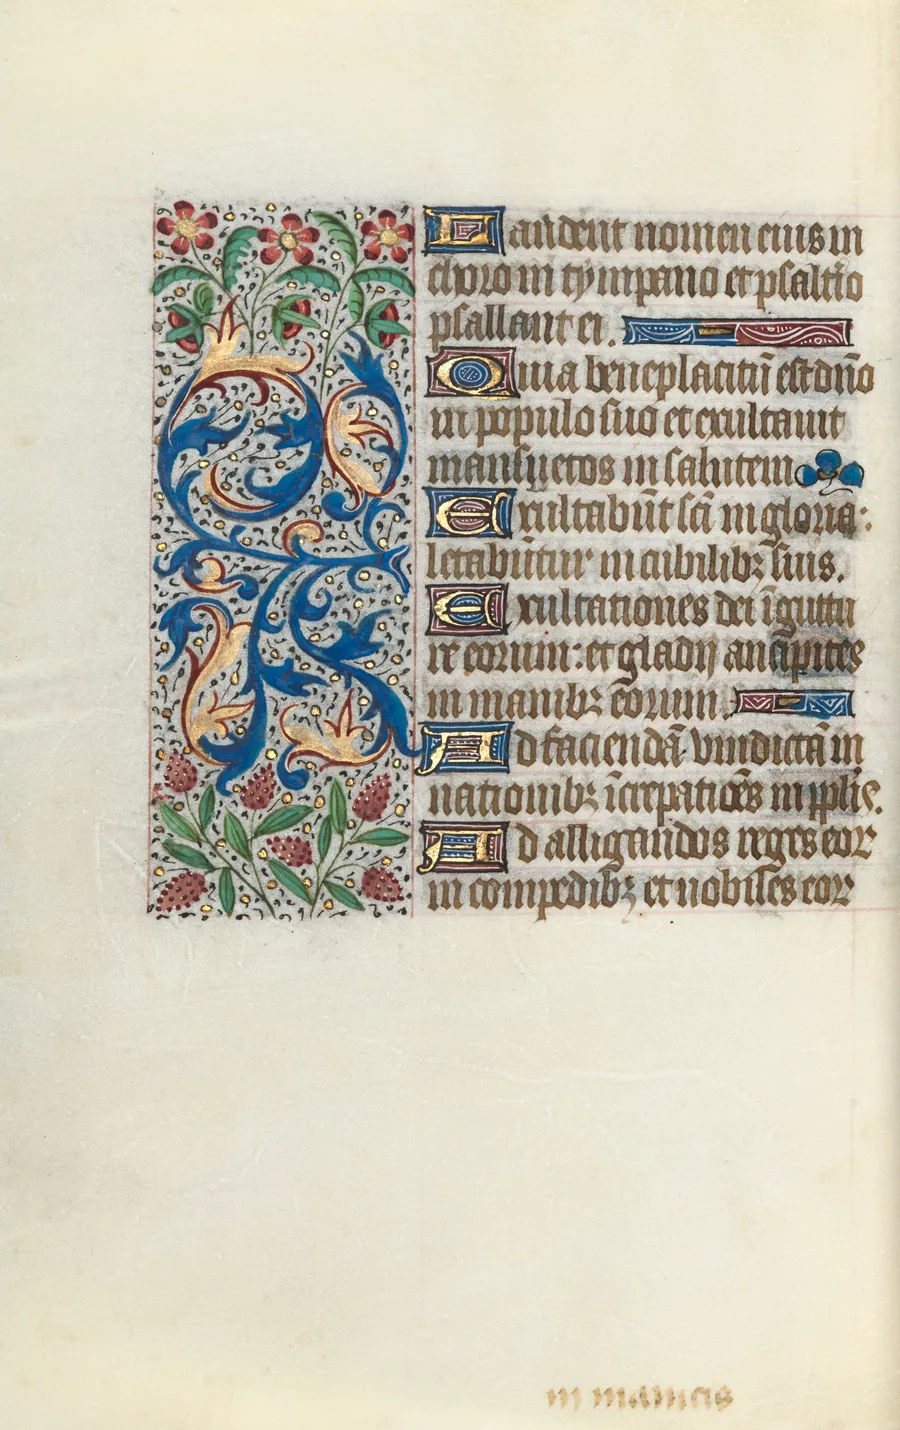 Laudent nomen eius in
choro in tympano et psaltio
psallant ei.
Quia beneplacitũ est dño
in populo suo et exultauit
mansuetos in salutem
Exultabũt sc̃i in gloria:
letabũtur in cubilibꝫ suis.
Exultationes dei ĩ guttu
re eorum: et gladij ancipites
in manibꝫ eorum.
Ad faciendã vindictã in
nationibꝫ ĩcrepatiões in pplis.
Ad alligandos reges eoꝝ
in compedibꝫ et nobiles eoꝝ
in manicis